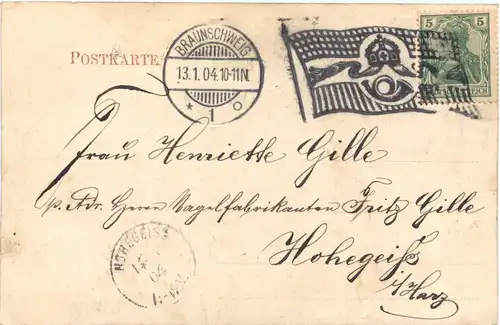 POSTKARTE
BRAUNSCHWEIG
13.1.04.10-11N.
* 1 o
5 5
REICH
Frau Henriette Gille
p. Adr. Herrn Nagelfabrikanten Fritz Gille
Hohegeiß
i/Harz
HOHEGEISS
14
04